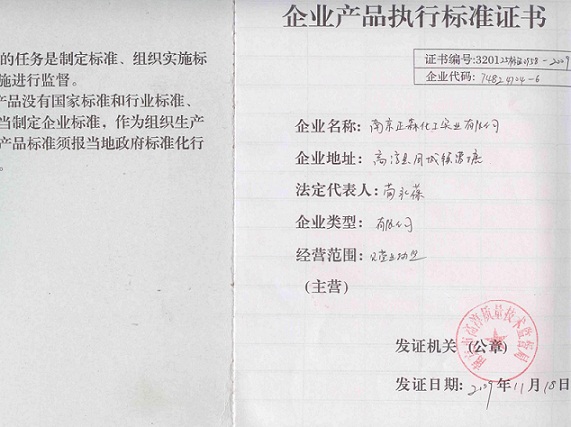 的任务是制定标准、组织实施标
施进行监督。
产品没有国家标准和行业标准、
当制定企业标准，作为组织生产
产品标准须报当地政府标准化行
。
企业产品执行标准证书
证书编号:320125 -2009
企业代码: 74824704-6
企业名称: 南京正森化工实业有限公司
企业地址: 高淳县
法定代表人:
企业类型: 有限公司
经营范围:
(主营)
发证机关 (公章)
高淳质量技术监督局
发证日期: 2009年11月18日